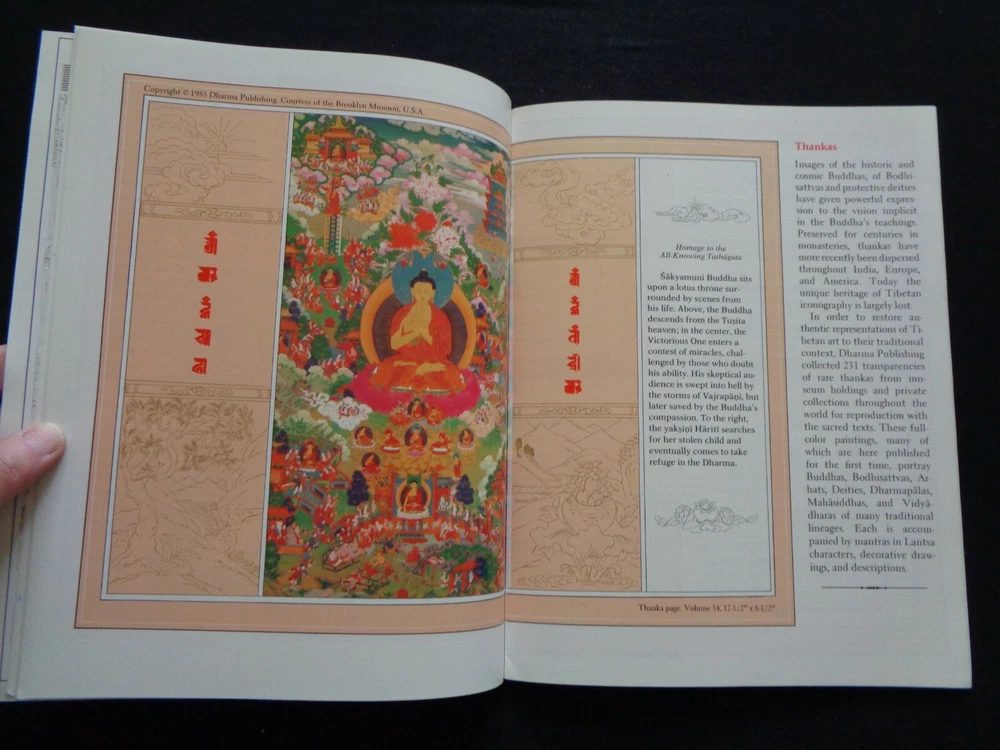 Copyright © 1983 Dharma Publishing. Courtesy of the Brooklyn Museum, U.S.A.
Homage to the
All-Knowing Tathāgata
Śākyamuni Buddha sits
upon a lotus throne sur-
rounded by scenes from
his life. Above, the Buddha
descends from the Tuṣita
heaven; in the center, the
Victorious One enters a
contest of miracles, chal-
lenged by those who doubt
his ability. His skeptical au-
dience is swept into hell by
the storms of Vajrapāṇi, but
later saved by the Buddha's
compassion. To the right,
the yakṣiṇī Hāritī searches
for her stolen child and
eventually comes to take
refuge in the Dharma.
Thanka page. Volume 34, 12-1/2" x 8-1/2"
Thankas
Images of the historic and
cosmic Buddhas, of Bodhi-
sattvas and protective deities
have given powerful expres-
sion to the vision implicit
in the Buddha's teachings.
Preserved for centuries in
monasteries, thankas have
more recently been dispersed
throughout India, Europe,
and America. Today the
unique heritage of Tibetan
iconography is largely lost.
In order to restore au-
thentic representations of Ti-
betan art to their traditional
context, Dharma Publishing
collected 231 transparencies
of rare thankas from mu-
seum holdings and private
collections throughout the
world for reproduction with
the sacred texts. These full-
color paintings, many of
which are here published
for the first time, portray
Buddhas, Bodhisattvas, Ar-
hats, Deities, Dharmapālas,
Mahāsiddhas, and Vidyā-
dharas of many traditional
lineages. Each is accom-
panied by mantras in Lantsa
characters, decorative draw-
ings, and descriptions.